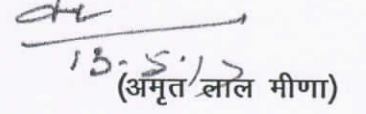 13.5.13
(अमृत लाल मीणा)